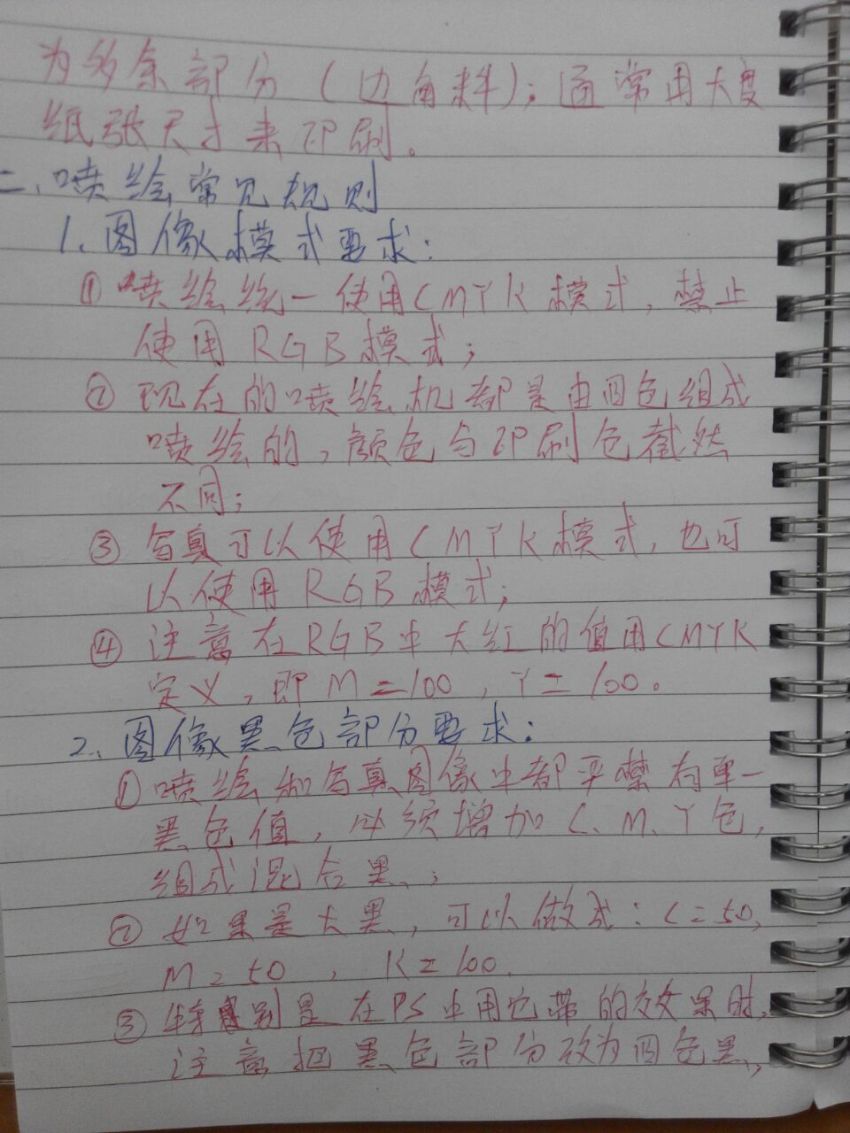 为多余部分(边角料);通常用大度
纸张尺寸来印刷。
二、喷绘常见规则
1、图像模式要求:
① 喷绘统一使用CMYK模式,禁止
使用RGB模式;
② 现在的喷绘机都是由四色组成
喷绘的,颜色与印刷色截然
不同;
③ 写真可以使用CMYK模式,也可
以使用RGB模式;
④ 注意在RGB中大红的值用CMYK
定义,即M=100,Y=100。
2、图像黑色部分要求:
① 喷绘和写真图像中都严禁有单一
黑色值,必须增加C、M、Y色,
组成混合黑;
② 如果是大黑,可以做成:C=50,
M=50,K=100.
③ 特别是在PS中用它带的效果时,
注意把黑色部分改为四色黑,